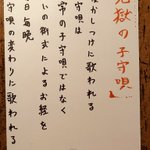 地獄の子守唄
かしつけに歌われる
守唄は
常の子守唄ではなく
いの新式によるお経を
日毎晩
守唄の変わりに歌われる